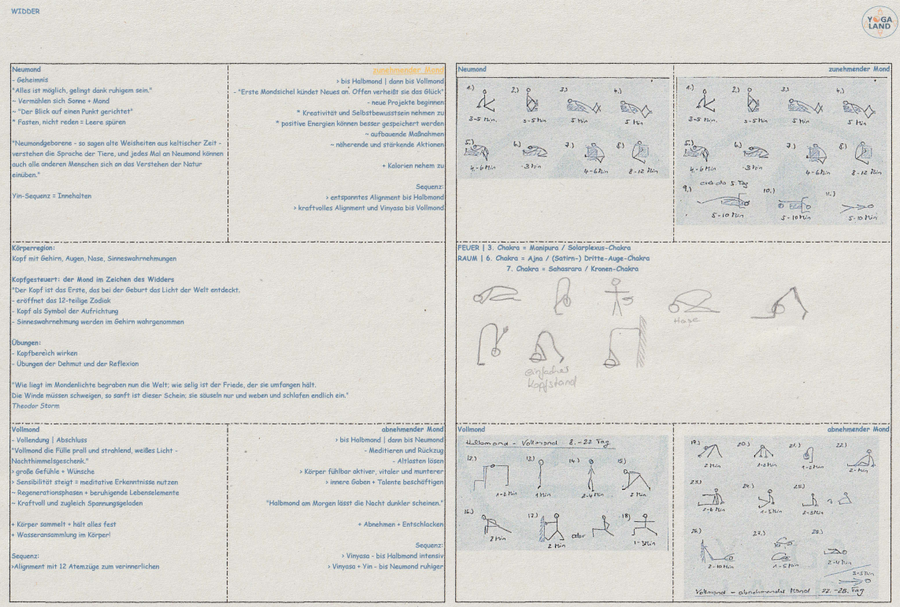 WIDDER
YOGA
LAND
Neumond
- Geheimnis
"Alles ist möglich, gelingt dank ruhigem sein."
~ Vermählen sich Sonne + Mond
~ "Der Blick auf einen Punkt gerichtet"
* Fasten, nicht reden = Leere spüren
"Neumondgeborene - so sagen alte Weisheiten aus keltischer Zeit -
verstehen die Sprache der Tiere, und jedes Mal an Neumond können
auch alle anderen Menschen sich an das Verstehen der Natur
einüben."
Yin-Sequenz = Innehalten
zunehmender Mond
› bis Halbmond | dann bis Vollmond
- "Erste Mondsichel kündet Neues an. Offen verheißt sie das Glück"
- neue Projekte beginnen
* Kreativität und Selbstbewusstsein nehmen zu
* positive Energien können besser gespeichert werden
~ aufbauende Maßnahmen
~ nährende und stärkende Aktionen
+ Kalorien nehmen zu
Sequenz:
› entspanntes Alignment bis Halbmond
› kraftvolles Alignment und Vinyasa bis Vollmond
Körperregion:
Kopf mit Gehirn, Augen, Nase, Sinneswahrnehmungen
Kopfgesteuert: der Mond im Zeichen des Widders
"Der Kopf ist das Erste, das bei der Geburt das Licht der Welt entdeckt.
- eröffnet das 12-teilige Zodiak
- Kopf als Symbol der Aufrichtung
- Sinneswahrnehmung werden im Gehirn wahrgenommen
Übungen:
- Kopfbereich wirken
- Übungen der Demut und der Reflexion
"Wie liegt im Mondenlichte begraben nun die Welt; wie selig ist der Friede, der sie umfangen hält.
Die Winde müssen schweigen, so sanft ist dieser Schein; sie säuseln nur und weben und schlafen endlich ein."
Theodor Storm
Vollmond
- Vollendung | Abschluss
"Vollmond die Fülle prall und strahlend, weißes Licht -
Nachthimmelsgeschenk."
› große Gefühle + Wünsche
› Sensibilität steigt = meditative Erkenntnisse nutzen
~ Regenerationsphasen + beruhigende Lebenselemente
~ Kraftvoll und zugleich Spannungsgeladen
+ Körper sammelt + hält alles fest
+ Wasseransammlung im Körper!
Sequenz:
›Alignment mit 12 Atemzüge zum verinnerlichen
abnehmender Mond
› bis Halbmond | dann bis Neumond
- Meditieren und Rückzug
- Altlasten lösen
› Körper fühlbar aktiver, vitaler und munterer
› innere Gaben + Talente beschäftigen
"Halbmond am Morgen lässt die Nacht dunkler scheinen."
+ Abnehmen + Entschlacken
Sequenz:
› Vinyasa - bis Halbmond intensiv
› Vinyasa + Yin - bis Neumond ruhiger
Neumond
zunehmender Mond
3-5 Min. 3-5 Min 5 Min 5 Min
4-6 Min -3 Min 4-6 Min 8-12 Min
3-5 Min. 3-5 Min 5 Min 5 Min
4-6 Min -3 Min 4-6 Min 8-12 Min
9.) 10.) 11.)
5-10 Min 5-10 Min 5-10 Min
FEUER | 3. Chakra = Manipura / Solarplexus-Chakra
RAUM | 6. Chakra = Ajna / (Satirn-) Dritte-Auge-Chakra
7. Chakra = Sahasrara / Kronen-Chakra
Hase
einfacher
Kopfstand
Vollmond
abnehmender Mond
Halbmond - Vollmond 8.-22 Tag
12.) 13.) 14.) 15.)
1 Min 2 Min
16.) 17.) oder 18.)
2 Min 2 Min 1-3 Min
19.) 20.) 21.) 22.)
2 Min 1-2 Min 2 Min
23.) 24.) 25.)
26.) 27.) 28.)
Vollmond - abnehmender Mond 22.-28. Tag